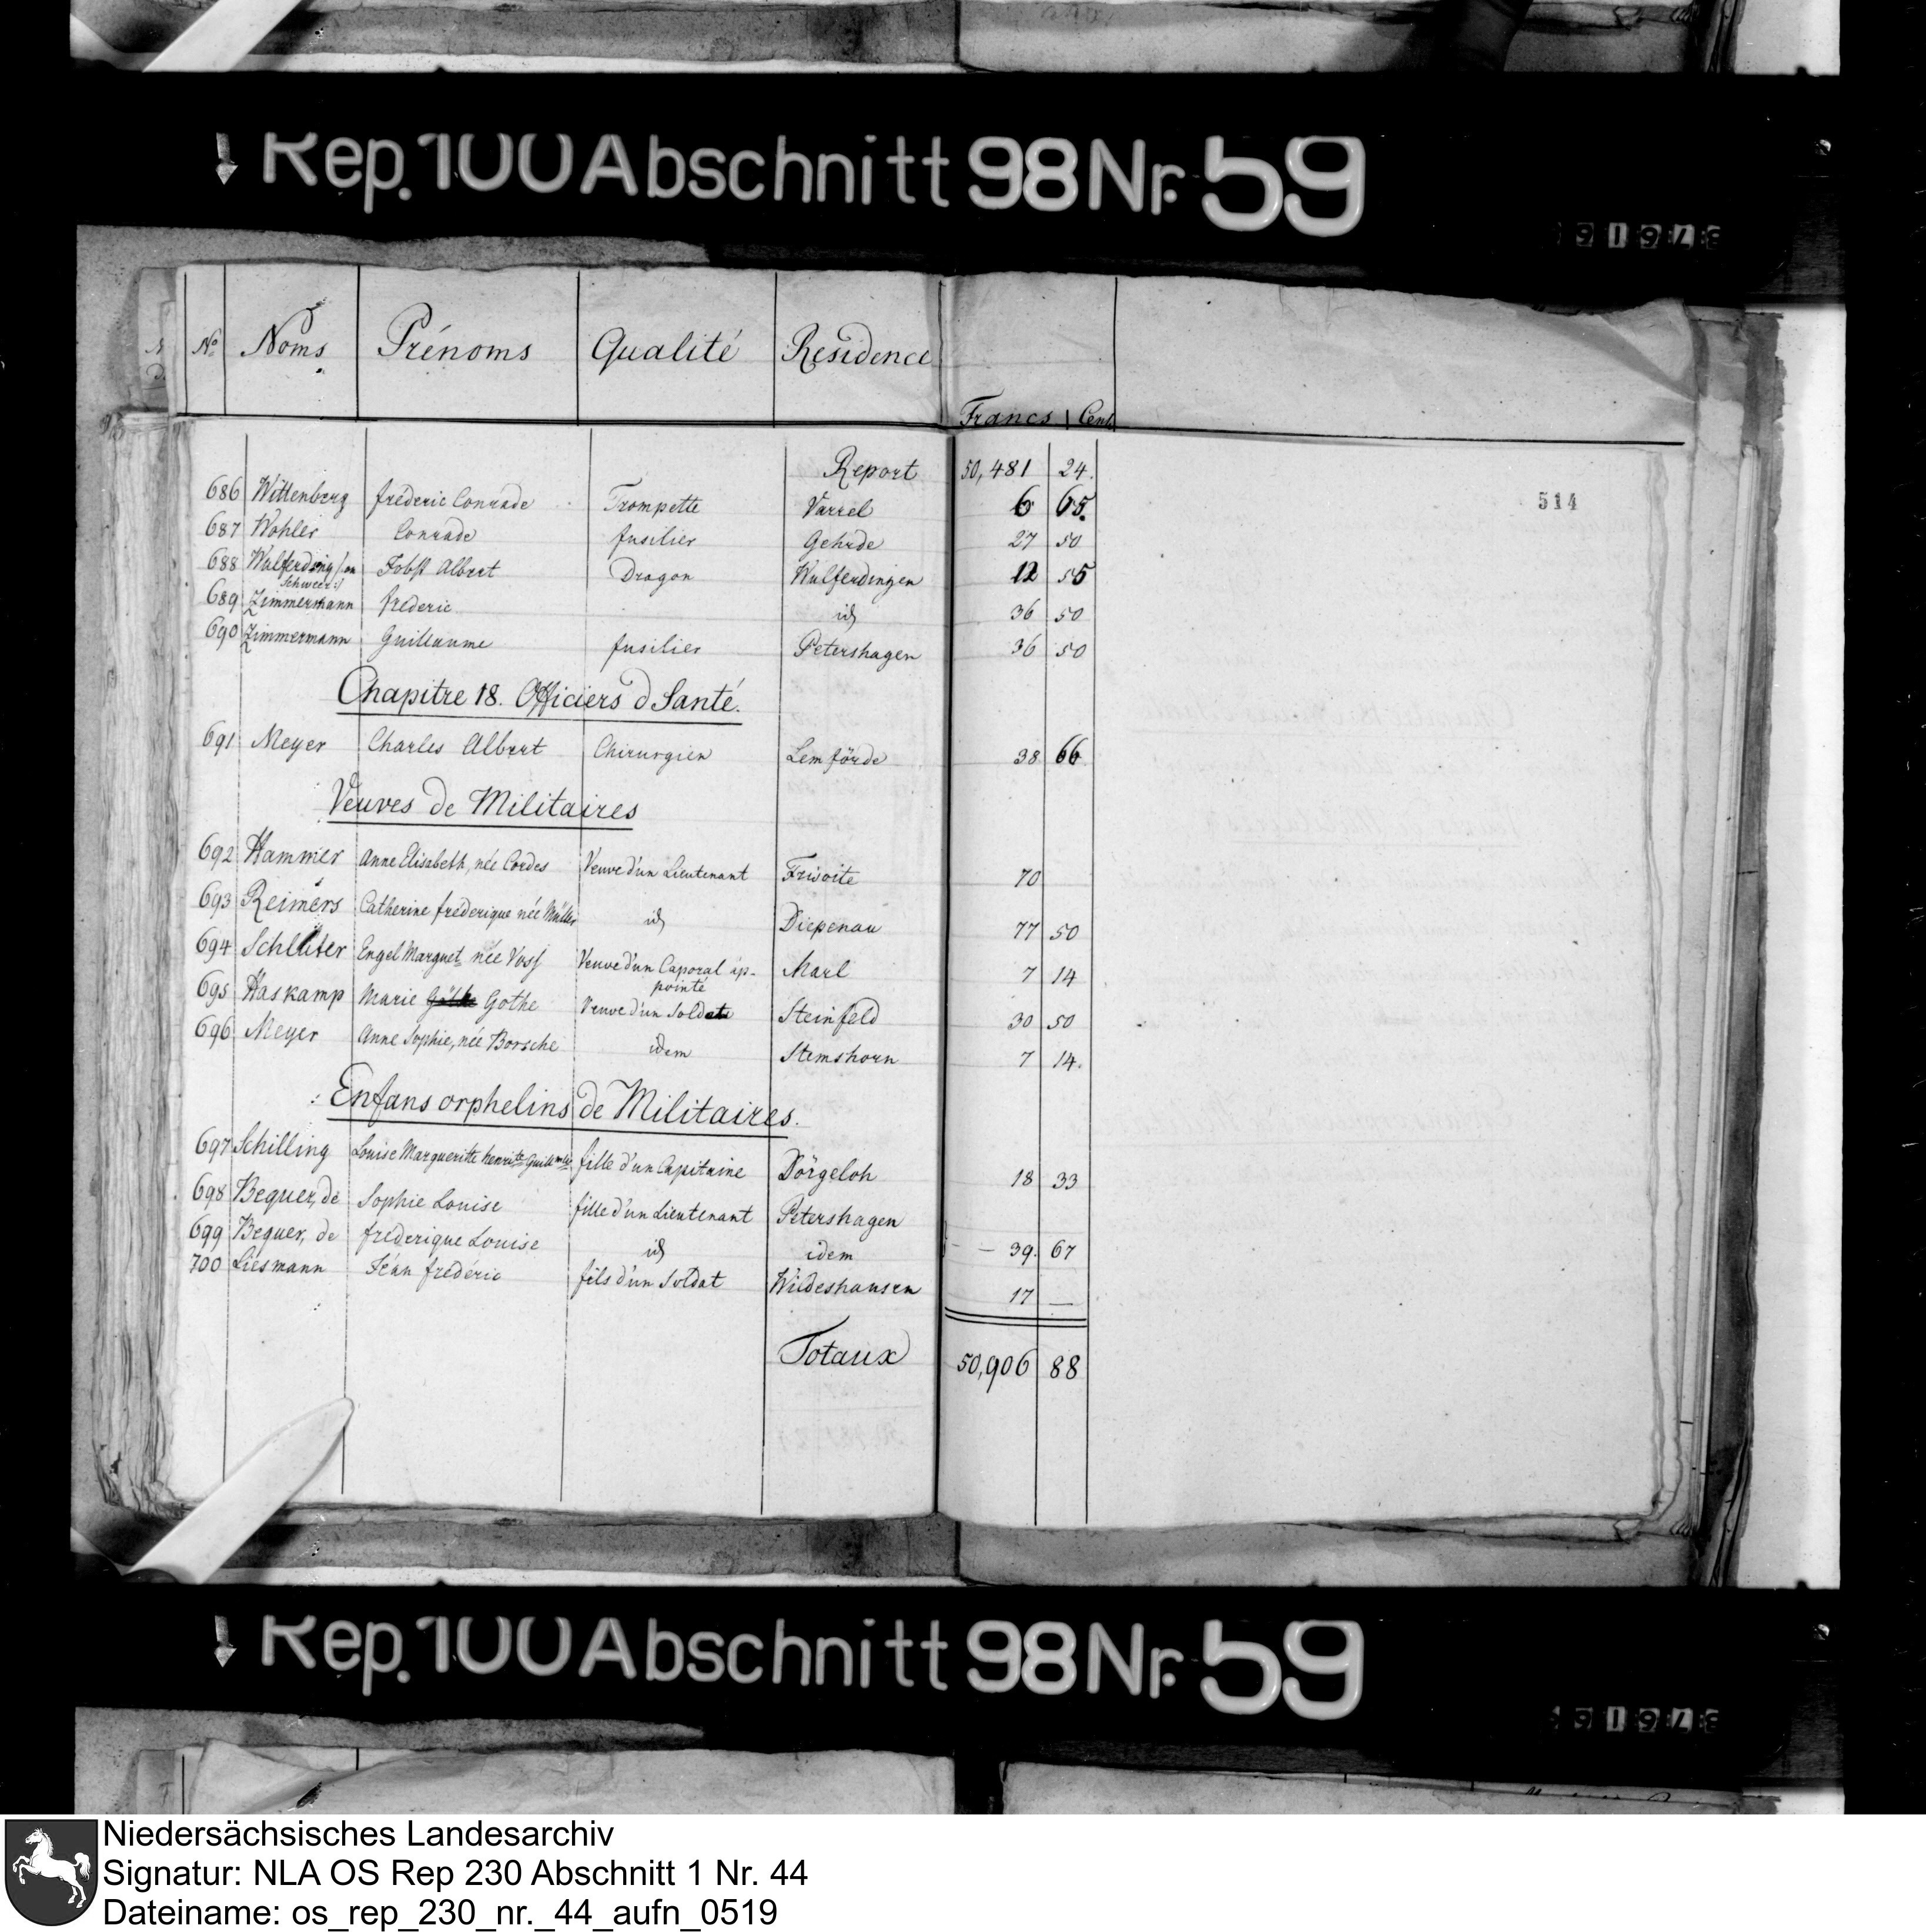 Rep. 100 Abschnitt 98 Nr. 59
No Noms Prénoms Qualité Residence Francs Cent.
Report 50,481 24.
514
686 Wittenberg fréderic Conrade Trompette Varrel 6 65.
687 Wohler Conrade fusilier Gehrde 27 50
688 Wulferding Jobst Albert Dragon Wulferdingen 12 55
689 Zimmermann fréderic id 36 50
690 Zimmermann Guillaume fusilier Petershagen 36 50
Chapitre 18. Officiers d Santé.
691 Meyer Charles Albert Chirurgien Lemförde 38 66
Veuves de Militaires
692 Hammer Anne Elisabeth, née Cordes Veuve d'un Lieutenant Frisoite 70
693 Reimers Catherine fréderique née Müller id Diepenau 77 50
694 Schlüter Engel Marguet née Voss Veuve d'un Caporal ap-
pointé Marl 7 14
695 Haskamp Marie Gothe Veuve d'un Soldat Steinfeld 30 50
696 Meyer Anne Sophie, née Borsche idem Stemshorn 7 14.
Enfans orphelins de Militaires.
697 Schilling Louise Margueritte fille d'un Capitaine Dörgeloh 18 33
698 Bequer, de Sophie Louise fille d'un Lieutenant Petershagen
699 Bequer, de fréderique Louise id idem 39. 67
700 Liesmann Jéan fréderic fils d'un Soldat Wildeshausen 17 —
Totaux 50,906 88
Rep. 100 Abschnitt 98 Nr. 59
Niedersächsisches Landesarchiv
Signatur: NLA OS Rep 230 Abschnitt 1 Nr. 44
Dateiname: os_rep_230_nr._44_aufn_0519